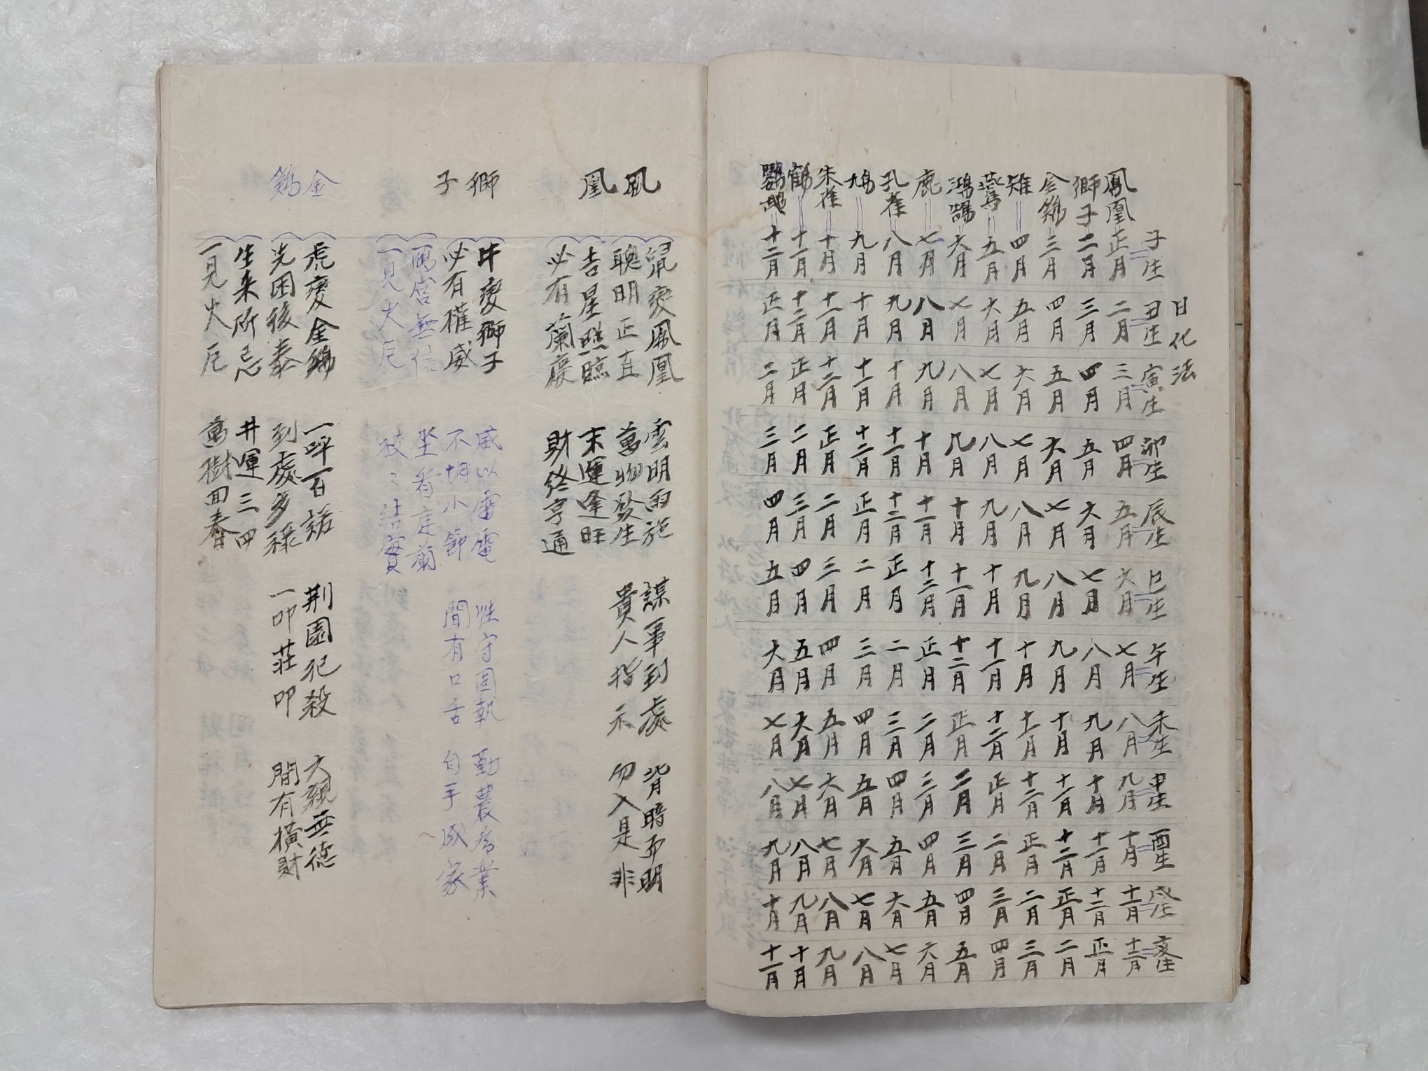 日化法
子生 丑生 寅生 卯生 辰生 巳生 午生 未生 申生 酉生 戌生 亥生
鳳凰 正月 二月 三月 四月 五月 六月 七月 八月 九月 十月 十一月 十二月
獅子 二月 三月 四月 五月 六月 七月 八月 九月 十月 十一月 十二月 正月
金鷄 三月 四月 五月 六月 七月 八月 九月 十月 十一月 十二月 正月 二月
雉 四月 五月 六月 七月 八月 九月 十月 十一月 十二月 正月 二月 三月
燕 五月 六月 七月 八月 九月 十月 十一月 十二月 正月 二月 三月 四月
鴻鵠 六月 七月 八月 九月 十月 十一月 十二月 正月 二月 三月 四月 五月
鹿 七月 八月 九月 十月 十一月 十二月 正月 二月 三月 四月 五月 六月
孔雀 八月 九月 十月 十一月 十二月 正月 二月 三月 四月 五月 六月 七月
鳩 九月 十月 十一月 十二月 正月 二月 三月 四月 五月 六月 七月 八月
朱雀 十月 十一月 十二月 正月 二月 三月 四月 五月 六月 七月 八月 九月
鶴 十一月 十二月 正月 二月 三月 四月 五月 六月 七月 八月 九月 十月
鸚鵡 十二月 正月 二月 三月 四月 五月 六月 七月 八月 九月 十月 十一月
鳳凰
鼠變鳳凰 雲明雨施 謀事到處 背暗向明
聰明正直 萬物發生 貴人指示 勿入是非
吉星照臨 末運逢旺
必有蘭慶 財終亨通
獅子
牛變獅子 威以雷電 性守固執 勤農為業
必有權威 不拘小節 間有口舌 白手成家
兩宮無信 坐看庭前
一見火厄 枝々結實
金鷄
虎變金鷄 一呼百諾 荆園犯殺 六親無德
先困後泰 到處多祿 一叩莊叩 間有橫財
生来所忌 井運三四
一見火厄 萬樹回春